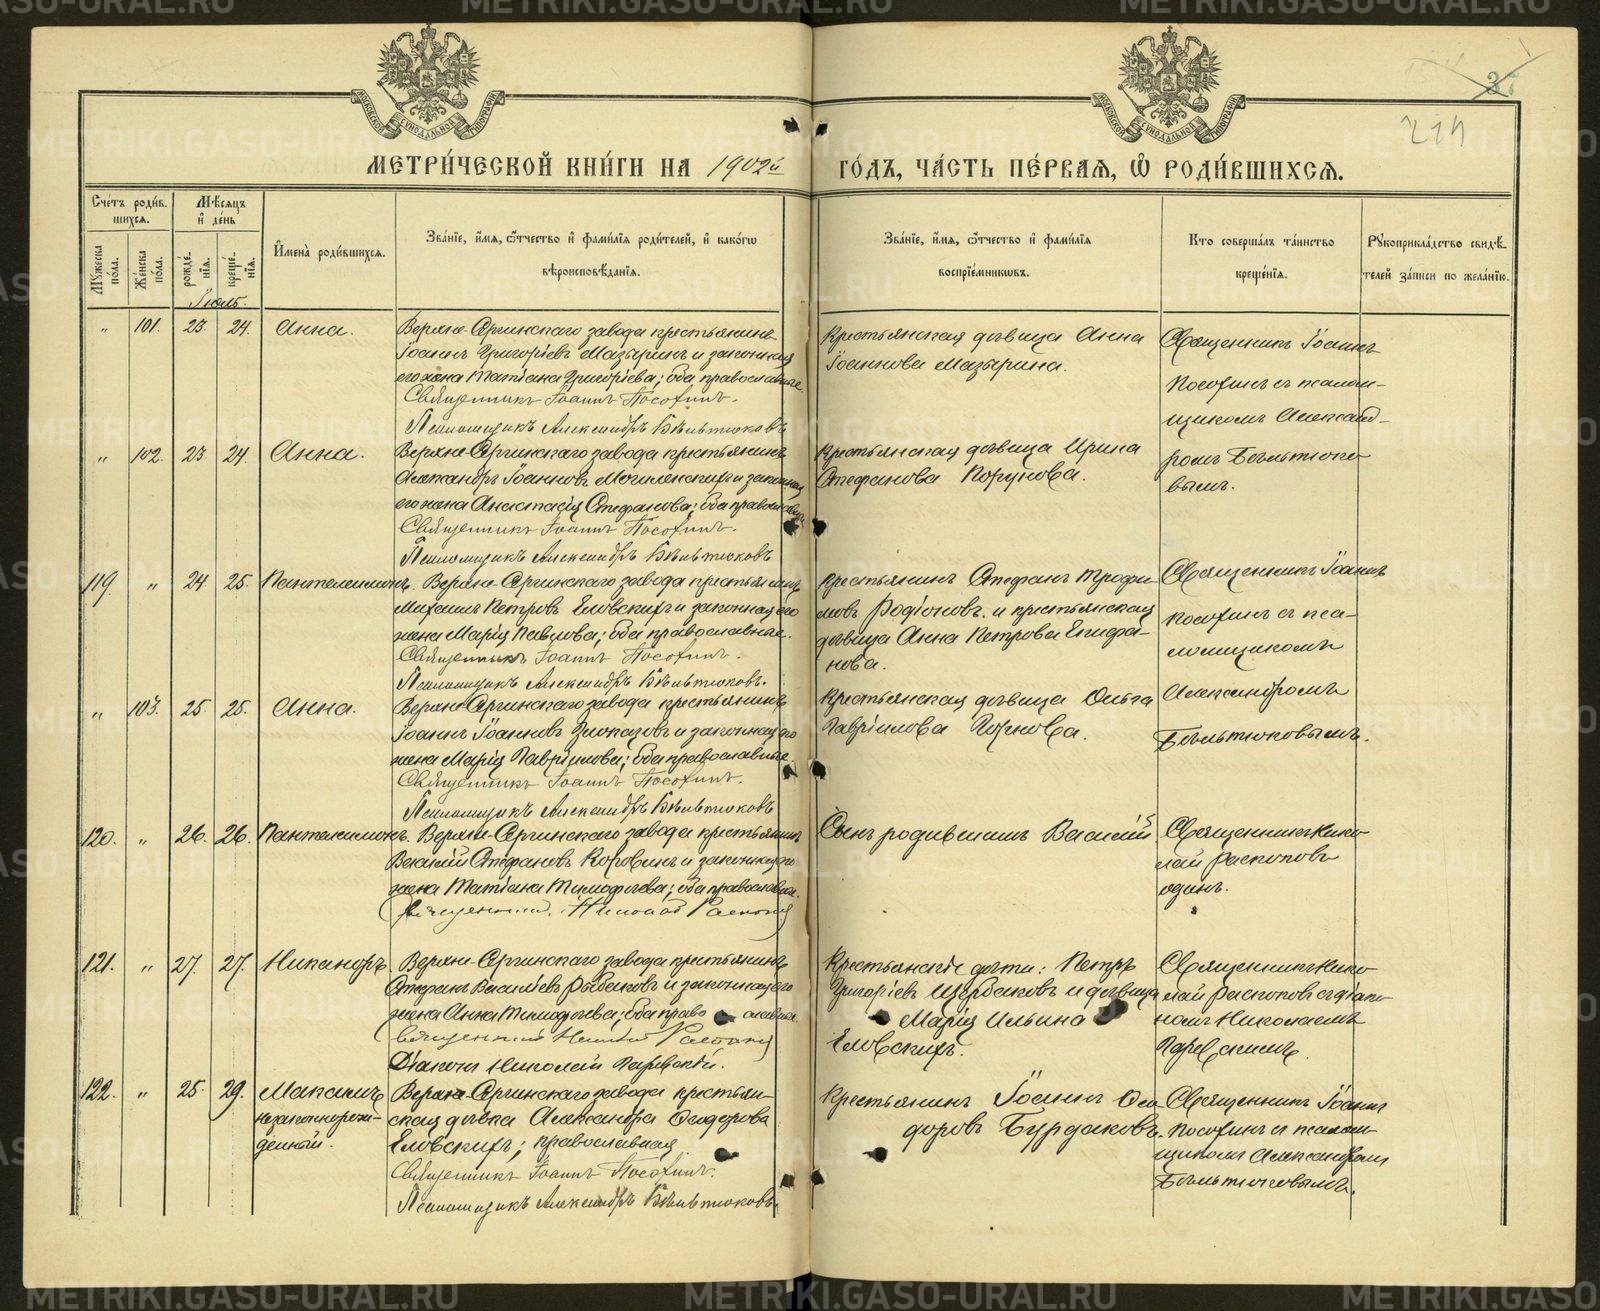 МЕТРИ́ЧЕСКОЙ КНИ́ГИ НА 1902й ГО́ДЪ, ЧА́СТЬ ПЕ́РВАЯ, Ѡ҆ РОДИ́ВШИХСЯ.
214
Сче́тъ роди́вшихся.
Мѣ́сяцъ и҆ де́нь
Му́жеска по́ла.
Же́нска по́ла.
рожде́нїя.
креще́нїя.
И҆мена̀ роди́вшихся.
Зва́нїе, и҆́мя, ѻ҆́тчество и҆ фами́лїя роди́телей, и҆ како́гѡ
вѣроисповѣ́данїя.
Зва́нїе, и҆́мя, ѻ҆́тчество и҆ фами́лїя
воспрїе́мникѡвъ.
Кто̀ соверша́лъ та́инство
креще́нїя.
Рꙋкоприкла́дство свидѣ́телей за́писи по жела́нїю.
Іюль.
„ 101. 23. 24. Анна.
Верхне-Сергинскаго завода крестьянинъ
Іоаннъ Григоріевъ Мазыринъ и законная
его жена Татіана Григоріева; оба православные.
Священникъ Іоаннъ Посохинъ.
Псаломщикъ Александръ Бѣльтюковъ
Крестьянская дѣвица Анна
Іоаннова Мазырина.
Священникъ Іоаннъ
Посохинъ съ псалом-
щикомъ Александ-
ромъ Бѣльтюко-
вымъ.
„ 102. 23. 24. Анна.
Верхне-Сергинскаго завода крестьянинъ
Александръ Іоанновъ и законная
его жена Анастасія Стефанова; оба православные
Священникъ Іоаннъ Посохинъ.
Псаломщикъ Александръ Бѣльтюковъ
Крестьянская дѣвица Ирина
Стефанова
119. „ 24. 25. Пантелеимонъ.
Верхне-Сергинскаго завода крестьянинъ
Михаилъ Петровъ Еловскихъ и законная его
жена Марія Павлова; оба православные.
Священникъ Іоаннъ Посохинъ.
Псаломщикъ Александръ Бѣльтюковъ.
Крестьянинъ Стефанъ Трофи-
мовъ Родіоновъ. и крестьянская
дѣвица Анна Петрова Епифа-
нова.
Священникъ Іоаннъ
Посохинъ съ пса-
ломщикомъ
Александромъ
Бѣльтюковымъ.
„ 103. 25. 25. Анна.
Верхне-Сергинскаго завода крестьянинъ
Іоаннъ Іоанновъ Злоказовъ и законная его
жена Марія Гавріилова; оба православные.
Священникъ Іоаннъ Посохинъ.
Псаломщикъ Александръ Бѣльтюковъ
Крестьянская дѣвица Ольга
Гавріилова
120. „ 26. 26. Пантелеимонъ.
Верхне-Сергинскаго завода крестьянинъ
Василій Стефановъ Коровинъ и законная его
жена Татіана Тимофѣева; оба православные.
Священникъ Николай
Сынъ родившихъ Василій.
Священникъ Нико-
лай Распоповъ
одинъ.
121. „ 27. 27. Никаноръ.
Верхне-Сергинскаго завода крестьянинъ
Стефанъ Василіевъ Рыбаковъ и законная его
жена Анна Тимофѣева; оба православные
Священникъ Николай
Діаконъ Николай Паревскій.
Крестьянскіе дѣти: Петръ
Григоріевъ Щербаковъ и дѣвица
Марія Ильина
Еловскихъ.
Священникъ Нико-
лай Распоповъ съ діако-
номъ Николаемъ
122. „ 25. 29. Максимъ
незаконнорож-
денный.
Верхне-Сергинскаго завода крестьян-
ская дѣвка Александра Ѳеодорова
Еловскихъ; православная
Священникъ Іоаннъ Посохинъ.
Псаломщикъ Александръ Бѣльтюковъ.
Крестьянинъ Іоаннъ Ѳео-
доровъ Бурдаковъ.
Священникъ Іоаннъ
Посохинъ съ псалом-
щикомъ Александромъ
Бѣльтюковымъ.
METRIKI.GASO-URAL.RU